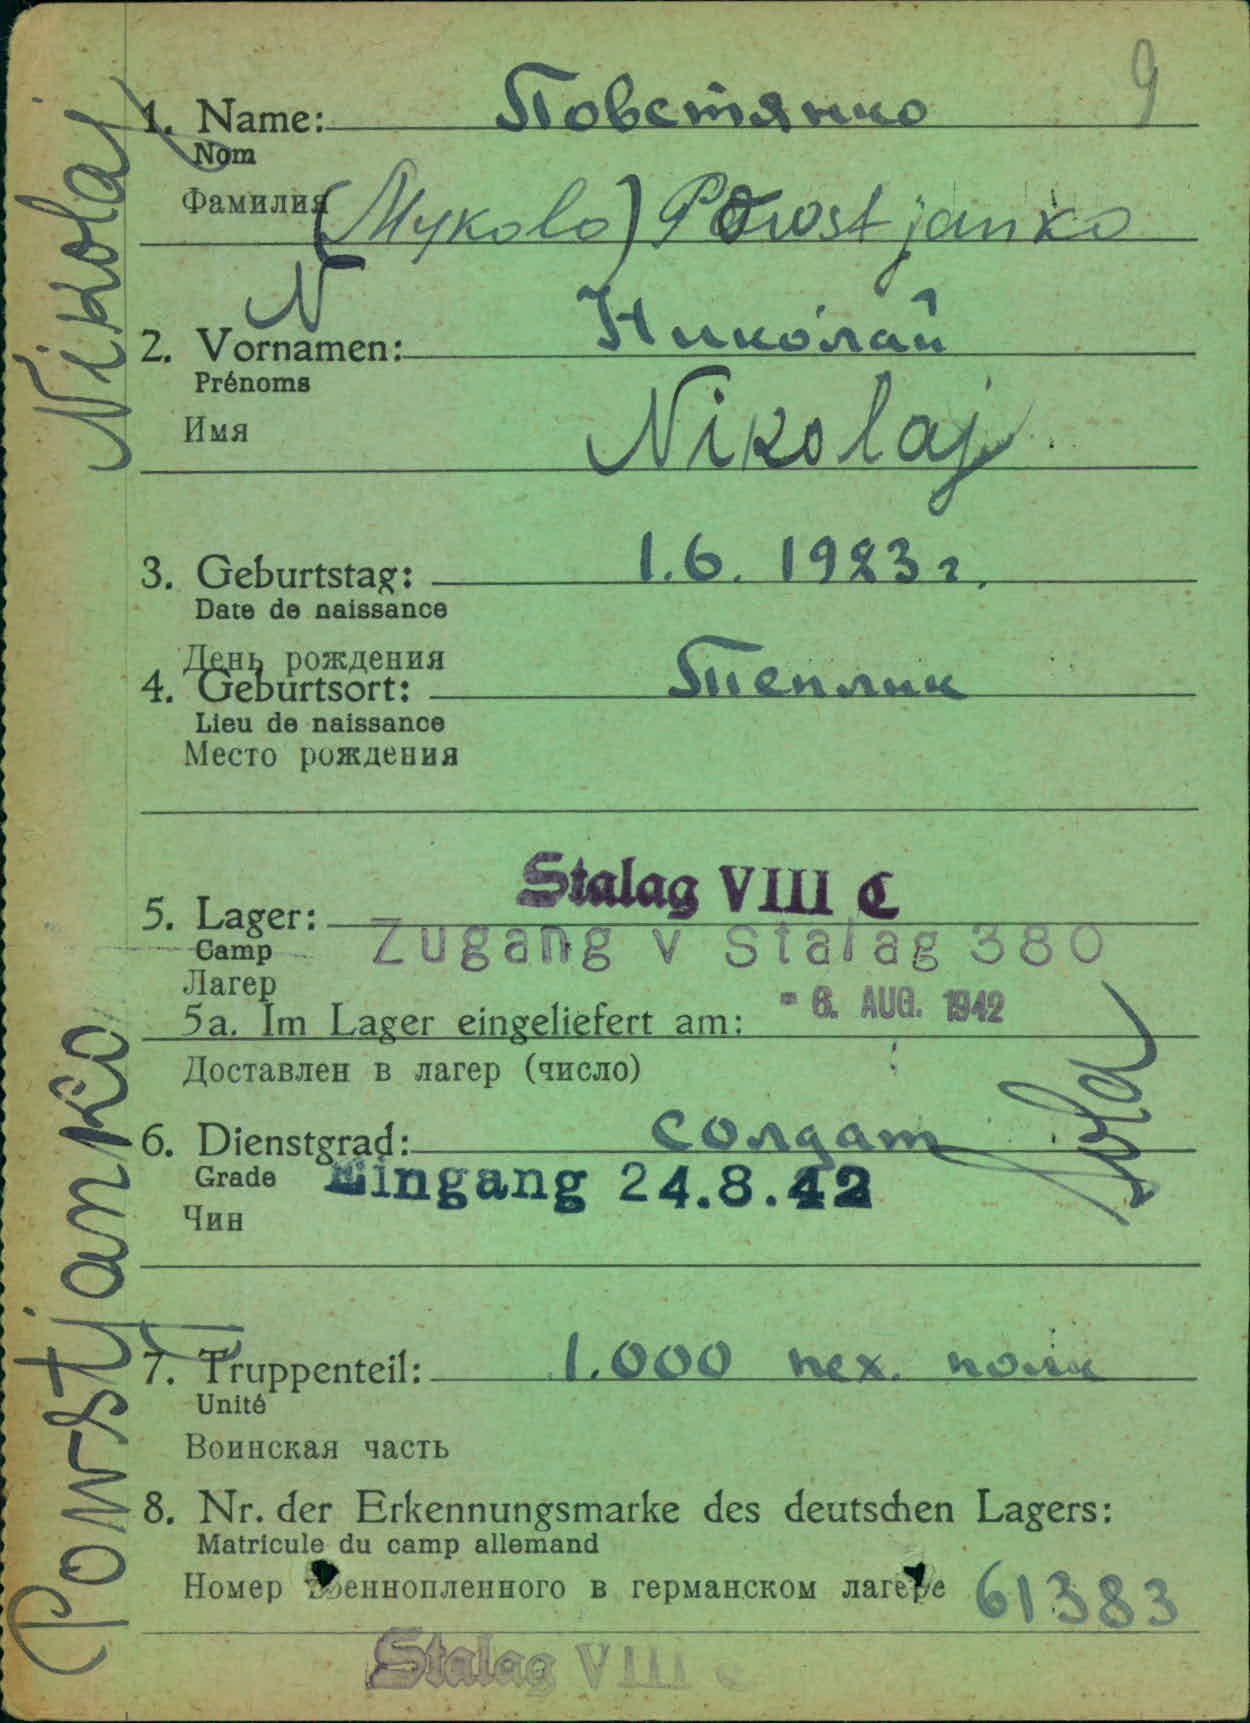 9
1. Name: Повстянко
Nom
Фамилия (Mykola) Powstjanko
N
2. Vornamen: Николай
Prénoms
Имя Nikolaj
3. Geburtstag: 1.6. 1923 г.
Date de naissance
День рождения
4. Geburtsort: Теплик
Lieu de naissance
Место рождения
Stalag VIII C
5. Lager:
Camp Zugang v Stalag 380
Лагер
5a. Im Lager eingeliefert am: - 6. AUG. 1942
Доставлен в лагер (число)
6. Dienstgrad: солдат Sold
Grade Eingang 24.8.42
Чин
7. Truppenteil: 1.000 пех. полк
Unité
Воинская часть
8. Nr. der Erkennungsmarke des deutschen Lagers:
Matricule du camp allemand
Номер военнопленного в германском лагере 61383
Stalag VIII C
Powstjanko Nikolaj